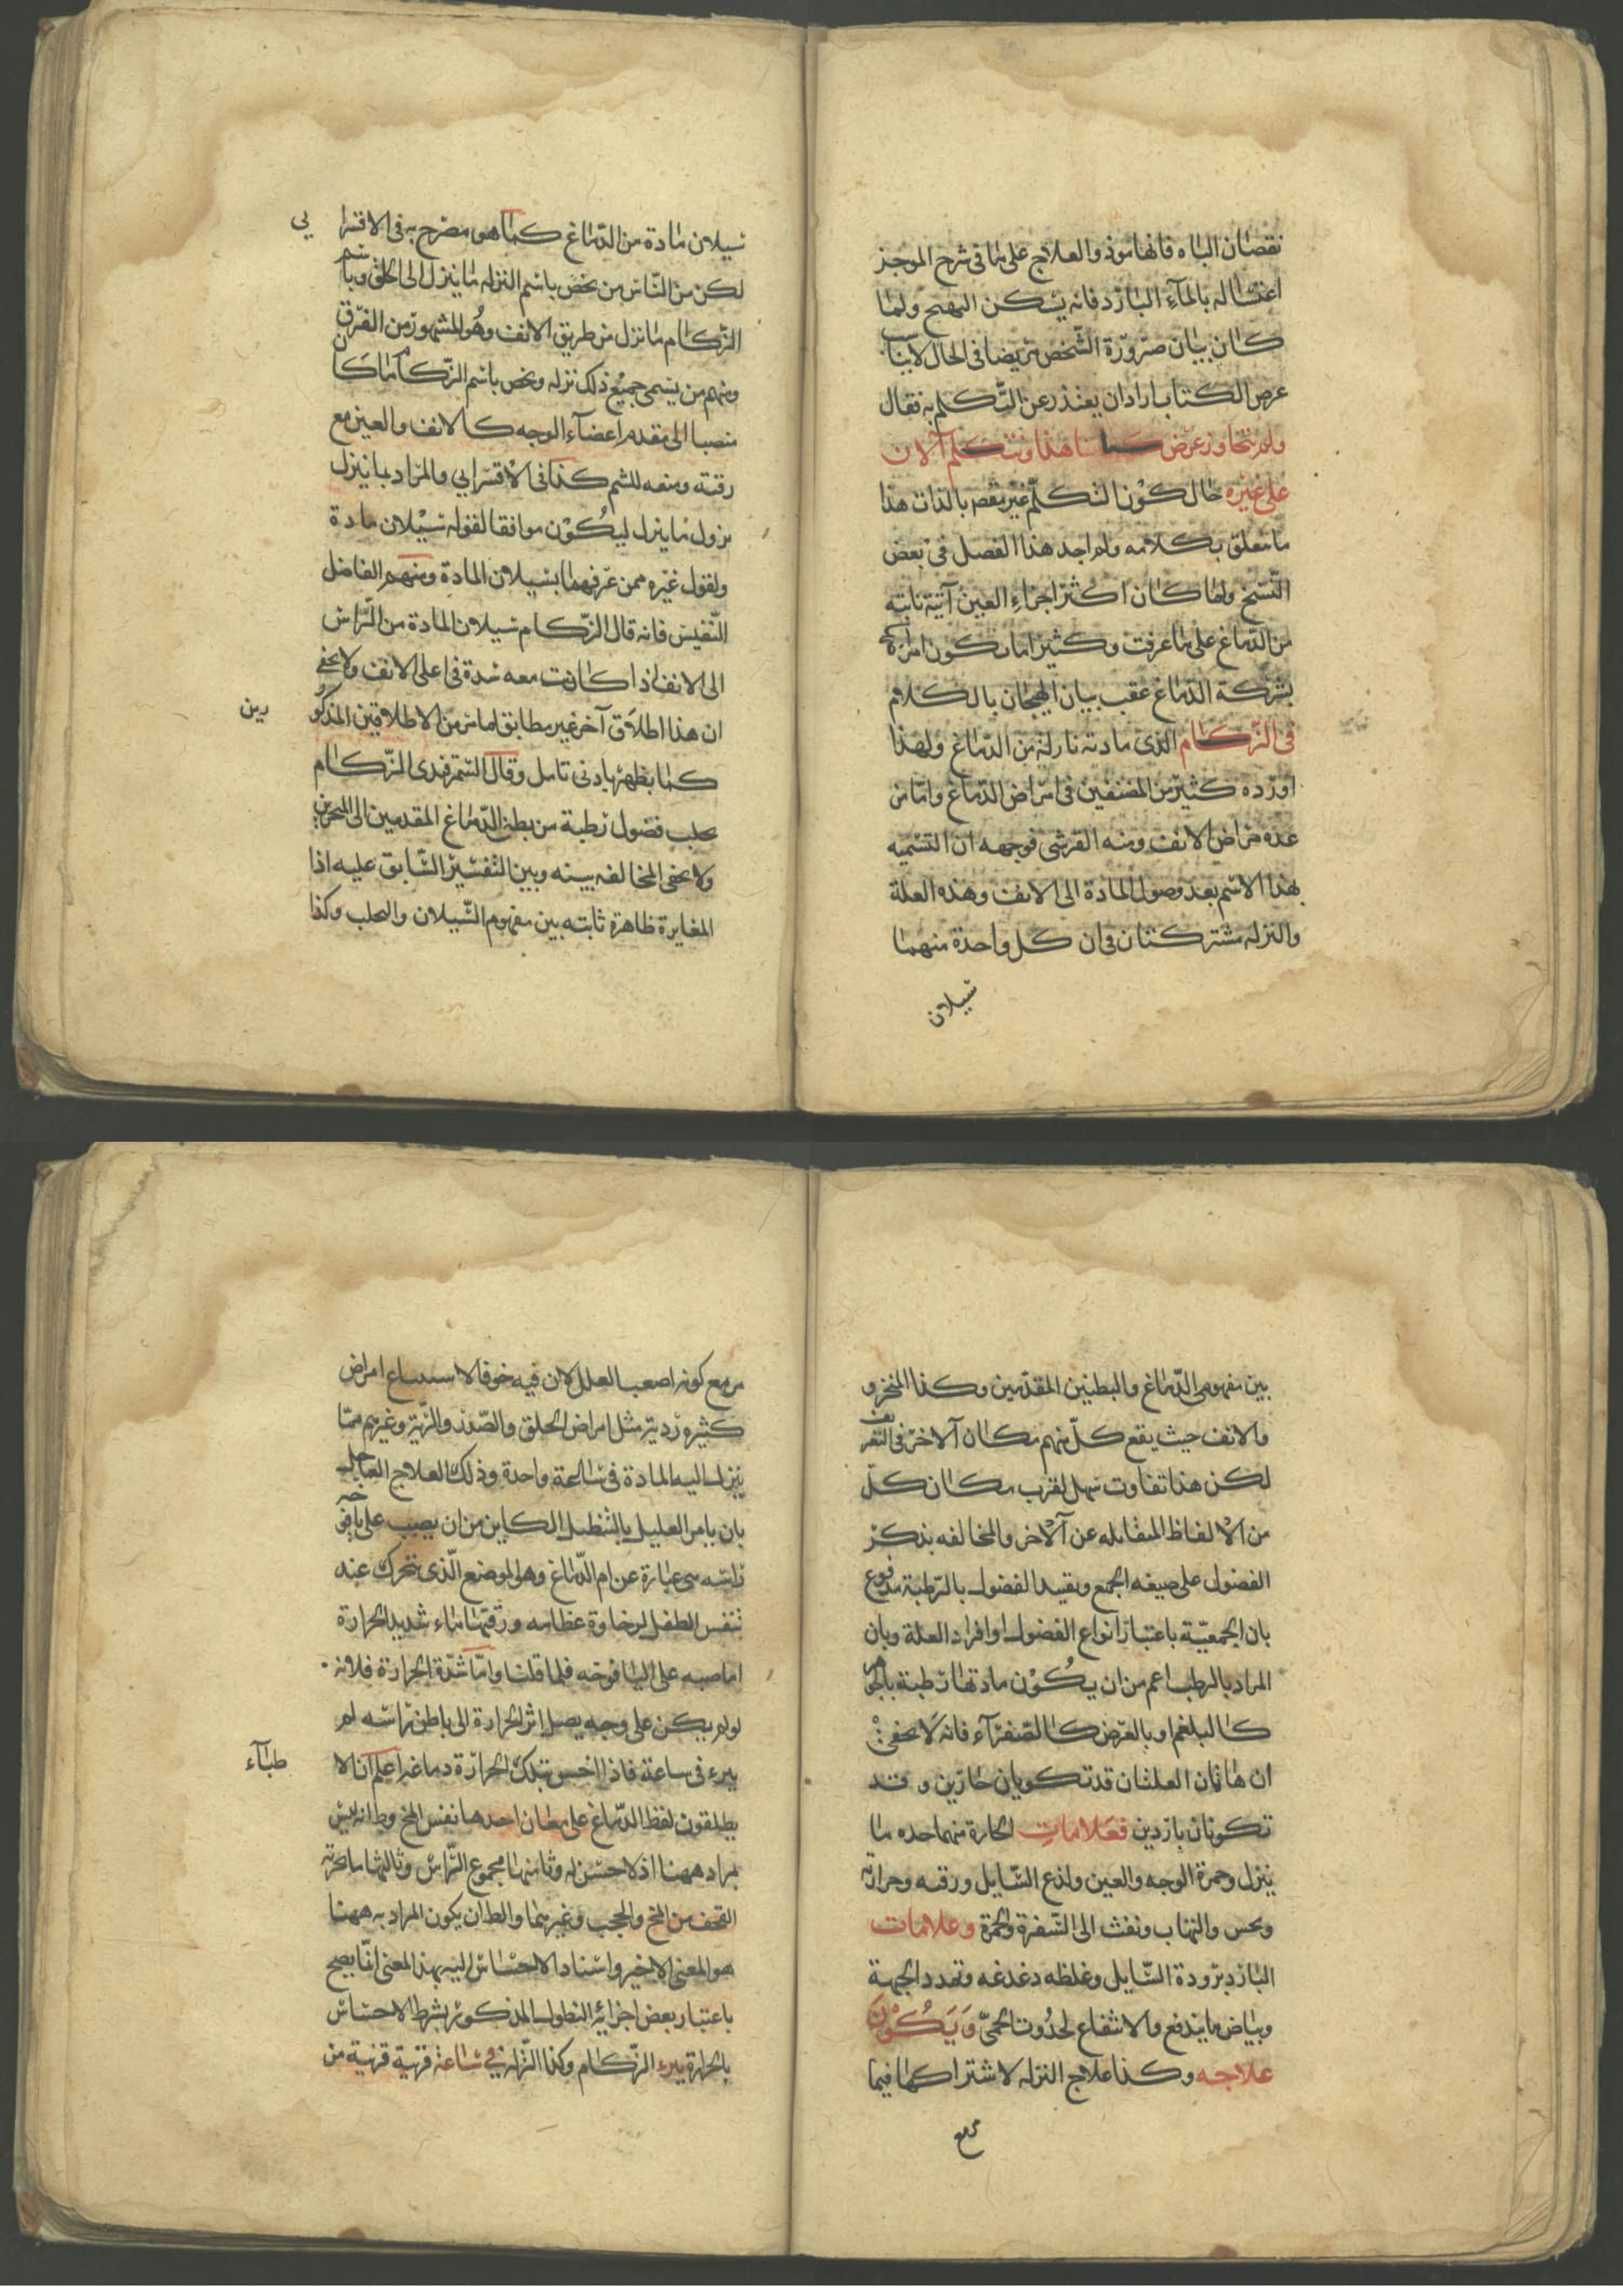 نقصان الباه فانها موذ والعلاج على ما فى شرح الموجز
اغتساله بالمآء البارد فانه يسكن المهيج ولما
كان بيان ضرورة الشخص مريضا فى الحال لا يناسب
غرض الكتاب اراد ان يعتذر عن التكلم به فقال
ولم نتجاوز عرض كتابنا هذا ونتكلم الآن
على غيره حال كون التكلم غير متصم بالذات هذا
ما يتعلق بكلامه ولم اجد هذا الفصل فى بعض
النسخ ولما كان اكثر اجزاء العين آتية نابته
من الدماغ على ما عرفت وكثيرا ما تكون امراضه
بشركة الدماغ عقب بيان الهيجان بالكلام
فى الزكام الذى مادته نازلة من الدماغ ولهذا
اورده كثير من المصنفين فى امراض الدماغ واما من
عده من امراض الانف ومنه القرشى فوجهه ان التسميه
بهذا الاسم بعد وصول المادة الى الانف وهذه العلة
والنزله مشتركتان فى ان كل واحدة منهما
سيلان
سيلان مادة من الدماغ كما هو مصرح به فى الاقسرا
يى
لكن من الناس من يخص باسم النزله ما ينزل الى الحلق وباسم
الزكام ما نزل من طريق الانف وهو المشهور من الفرق
ومنهم من يسمى جميع ذلك نزله ويخص باسم الزكام ما كان
منصبا الى مقدم اعضآء الوجه كالانف والعين مع
رقته ومنعه للشم كذا فى الاقسرايى والمراد بما ينزل
نزول ما ينزل ليكون موافقا لقوله سيلان مادة
ولقول غيره ممن عرفهما بسيلان المادة ومنهم الفاضل
النفيس فانه قال الزكام سيلان المادة من الراس
الى الانف اذا كانت معه شدة فى اعلى الانف ولا يخفى
ان هذا اطلاق آخر غير مطابق لما من من الاطلاقين المذكو
رين
كما يظهر بادنى تامل وقال السمرقندى الزكام
تحلب فضول رطبة من بطنى الدماغ المقدمين الى المنخرين
ولا يخفى المخالفه بينه وبين التفسير السابق عليه اذا
المغايرة ظاهرة ثابته بين مفهوم السيلان والتحلب وكذا
بين مفهومى الدماغ والبطنين المقدمين وكذا المنخر و
والانف حيث يقع كل منهم مكان الآخر فى التعريف
لكن هذا تفاوت سهل لقرب مكان كل
من الالفاظ المتقابله عن الآخر والمخالفه بذكر
الفضول على صيغه الجمع وتقييد الفضول بالرطبة مدفوع
بان الجمعية باعتبار انواع الفضول او افراد العلة وبان
المراد بالرطب اعم من ان يكون مادتها رطبة بالجوهر
كالبلغم او بالعرض كالصفرآء فانه لا يخفى
ان هاتان العلتان قد تكونان حارين وقد
تكونان باردين فعلامات الحارة منهما حده ما
ينزل وحمرة الوجه والعين ولذع السايل ورقه وحرارته
ويحس والتهاب ونفث الى الصفرة والحمرة وعلامات
البارد برودة السايل وغلظه دغدغه وتمدد الجبهة
وبياض ما يندفع والانتفاع لحدوث الحمى ويكون
علاجه وكذا علاج النزله لاشتراكهما فيما
مر مع
مر مع كونه اصعب العلل لان فيه خوفا لاستتباع امراض
كثيره ردية مثل امراض الحلق والصدر والرية وغيرهم مما
ينزل اليه المادة فى ساعة واحدة وذلك العلاج العاجل
بان يامر العليل بالتنطيل الكاين من ان يصب على يافوخه
راسه هى عبارة عن ام الدماغ وهو الموضع الذى يتحرك عند
تنفس الطفل لرخاوة عظامه ورقتها ماء شديد الحرارة
اما صبه على اليافوخه فلما قلنا واما شدة الحرارة فلانه
لو لم يكن على وجه يصل اثر الحرارة الى باطن راسه لم
يبرء فى ساعة فاذا احس بتلك الحرارة دماغه اعلم ان الا
طبآء
يطلقون لفظ الدماغ على معان احدها نفس المخ وظ انه ليس
بمراد ههنا اذ لا حس له وثانيها مجموع الراس وثالثها ما يحويه
القحف من المخ والحجب وغيرهما والظ ان يكون المراد به ههنا
هو المعنى الاخير واسناد الاحساس اليه بهذا المعنى انما يصح
باعتبار بعض اجزائه النطول المذكور بشرط الاحساس
بالحرارة يبرء الزكام وكذا النزله فى ساعة قريبة قريبة من